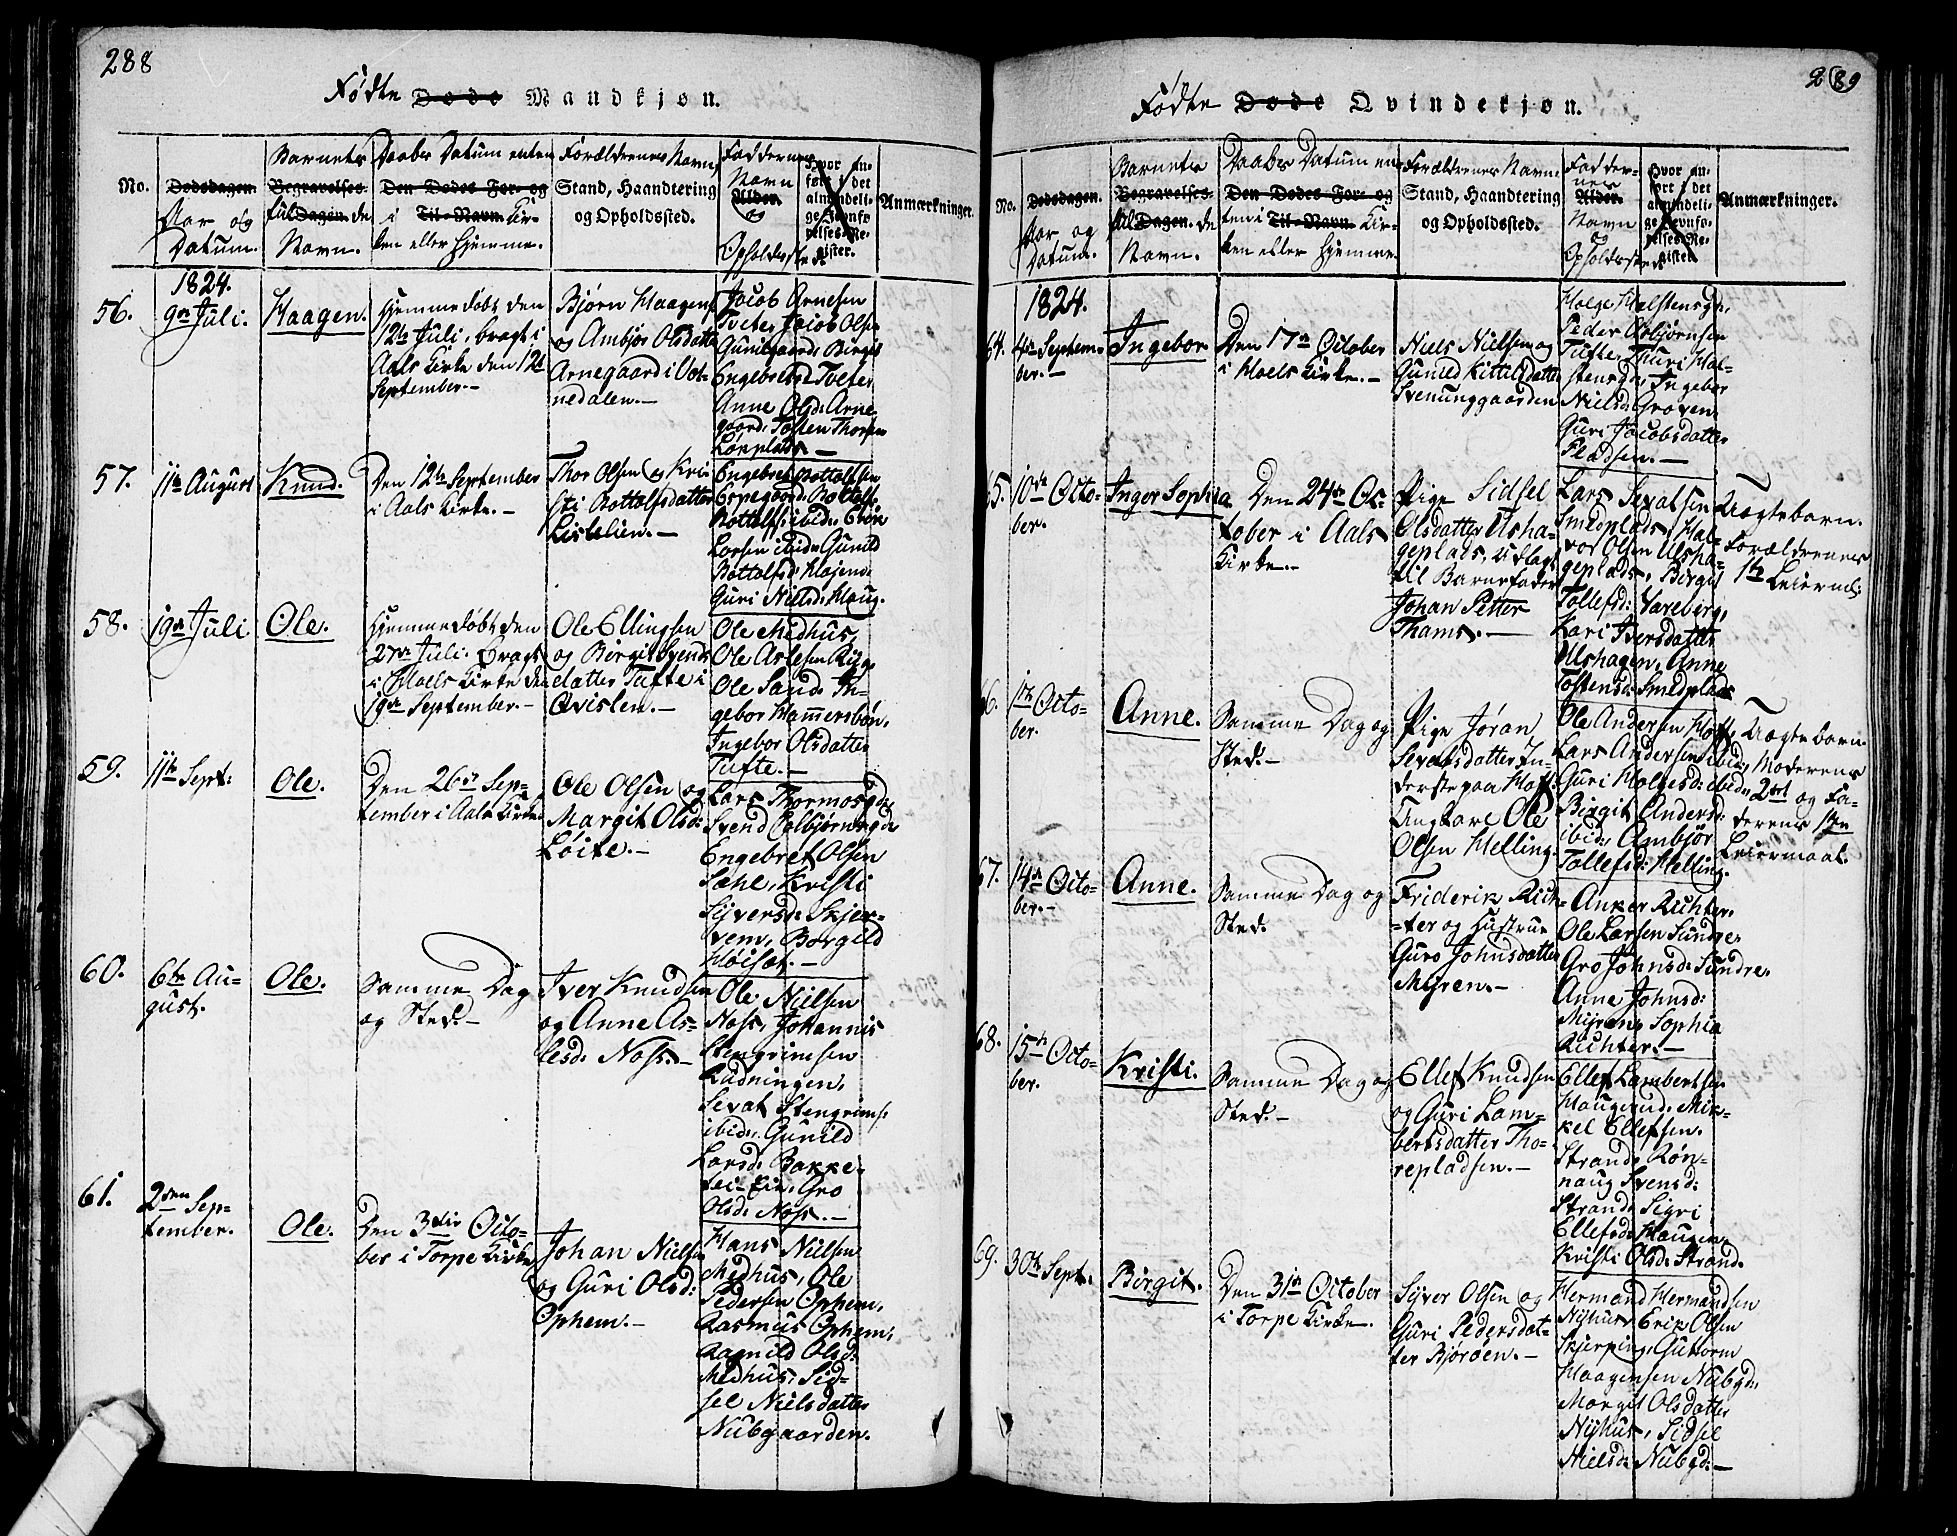 288
Fødte Døde Mandkjøn.
No.
Dødsdagen.
Aar og
Datum.
Barnets
Begravelses-
Dagen.
Navn.
Daabs Datum enten
Den Dødes For- og
i Til-Navn. Kir-
ken eller Hjemme.
Forældrenes Navn,
Stand, Haandtering
og Opholdssted.
Faddernes
Navn
Alder.
og
Opholdssted.
Hvor an-
ført i det
almindeli-
ge Jevnfø-
relses-Re-
gister.
Anmærkninger.
1824.
56.
9de Juli.
Haagen.
Hjemmedøbt den
12te Juli, bragt i
Aals Kirke den 12te
September.-
Bjørn Haagens.
og Ambjør Olsdatter
Arnegaard i Vot-
nedalen.-
Jacob Arnesen
Tveter, Jacob Olsen
Gunilgaard, Birgit
Engebretsd. Tveter
Anne Olsd: Arne-
gaard, Tosten Thorsen
57.
11te August
Knud.
Den 12te September
i Aals Kirke.-
Thor Olsen og Kri-
sti Bottolfsdatter
Listelien.-
Engebret Bottolfsen
Espegaard, Bottolf
Bottolfs: ibid: Erik
Larsen ibid: Gunild
Bottolfsd:
Guri Nielsd: Haug.
58.
19de Juli
Ole.
Hjemmedøbt den
27de Juli. Bragt
i Hoels Kirke den
19de September.-
Ole Ellingsen
og Birgit Svends
datter Tufte i
Qvislen.-
Ole Medhus,
Ole Aslesen Ruge
Ole Sand, In-
gebor Hammersbøn,
Ingebor Olsdatter
Tufte.-
59.
11te Sept:
Ole.
Den 26de Sep-
tember i Aals Kirke
Ole Olsen og
Margit Olsd:
Løite.-
Lars Thormosgd,
Svend Colbjørnsgd
Engebret Olsen
Sæhle, Kristi
Syversd: Skjer-
vem, Borgild
Høisæt.-
60.
6te Au-
gust.
Ole.
Samme Dag
og Sted.-
Iver Knudsen
og Anne As-
lesd: Noss.-
Ole Nielsen
Noss, Johannis
Stengrimsen
Rudningen,
Sevat Stengrims:
ibid:, Gunild
Larsd: Bakke-
Gro
Olsd: Noss.-
61.
2den Sep-
tember.
Ole.
Den 3die Octo-
ber i Torpe Kirke
Johan Nielsen
og Guri Olsd:
Ophem.-
Hans Nielsen
Medhus, Ole
Pedersen Ophem,
Rasmus Ophem,
Ragnild Olsd:
Medhus, Sid-
sel Nielsdatter
Nubgaarden.
289
Fødte Døde Qvindekjøn.
No.
Dødsdagen.
Aar og
Datum.
Barnets
Begravelses-
Dagen.
Navn.
Daabs Datum en-
Den Dødes For- og
ten i Til-Navn. Kir-
ken eller Hjemme.
Forældrenes Navn
Stand, Haandtering
og Opholdssted.
Fadder-
nes
Alder.
Navn
og
Opholdssted.
Hvor an-
ført i det
almindeli-
ge Jevnfø-
relses-Re-
gister.
Anmærkninger.
1824.
64.
4de Septem-
ber.-
Ingebor
Den 17de October
i Hoels Kirke.-
Niels Nielsen og
Gunild Kittilsdatter
Svenunggaarden
Holge Halstensgd,
Peder Asbjørnsen
Tufte, Thuri Hal-
stensgd, Ingebor
Nielsd: Groven
Guri Jacobsdatter
Pladsen.-
65.
10de Octo-
ber.
Inger Sophia
Den 24de Oc-
tober i Aals
Kirke.-
Pige Sidsel
Olsdatter Ulsha-
geplads, udlagt
til Barnefader
Johan Petter
Thams.-
Lars Sevatsen
Smedplads, Hal-
vor Olsen Ulsha-
geplads, Birgit
Tollefsd: Vareberg,
Kari Iversdatter
Ulshagen, Anne
Tostensd: Smedplads
Uægte barn.
Forældrenes
1te Leiermål:
66.
Octo-
ber.
Anne.
Samme Dag og
Sted.-
Pige Jøran
Sevatsdatter In-
derste paa Hoff
Ungkarl Ole
Olsen Helling.
Ole Andersen Hoff,
Lars Andersen ibid:
Guri Holgesd: ibid:
Birgit Andersd:
ibid:, Ambjør
Tollefsd: Helling.
Uægte barn.
Moderens
2det og Fa-
derens 1te
Leiermaal.
67.
14de Octo-
ber.-
Anne.
Samme Dag og
Sted.
Friderik Rich-
ter og Hustrue
Guro Johnsdatter
Myren.-
Anker Richter.
Ole Larsen Sundre,
Gro Johnsd: Sundre,
Anne Johnsd:
Myren, Sophia
Richter.-
68.
15de Octo-
ber.
Kristi.
Samme Dag og
Sted.-
Ellef Knudsen
og Guri Lam-
bertsdatter Tho-
repladsen.-
Ellef Lambertsen
Haugerud, Mik-
kel Ellefsen.
Strand, Røn-
naug Svensd:
Strand, Sigri
Ellefsd: Haugen
Kristi Olsd: Strand.
69.
30te Sept.
Birgit.
Den 31te October
i Torpe Kirke.
Syver Olsen og
Guri Pedersdat-
ter Bjøröen.-
Hermand Hermandsen
Nyhus, Erik Olsen
Skjerping, Guttorm
Haagensen Nubgd:,
Margit Olsdatter
Nyhus, Sidsel
Nielsd: Nubgd:-